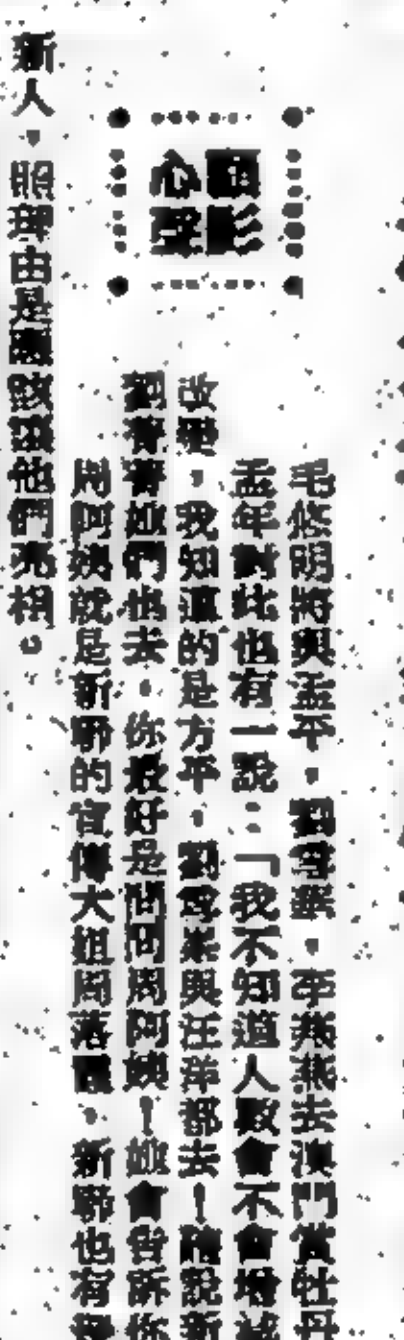 影
毛修明將與孟平，劉雪華，李燕燕去澳門賞牡丹
孟年對此也有一說：「我不知道人數會不會增減
改變，我知道的是方平，劉雪華與汪洋都去！聽說新
劉青青她們也去，你最好是問問周阿姨！她會告訴你
周阿姨就是新聯的宣傳大姐周落霞、新聯也有
新人，照理由是應該讓他們亮相。